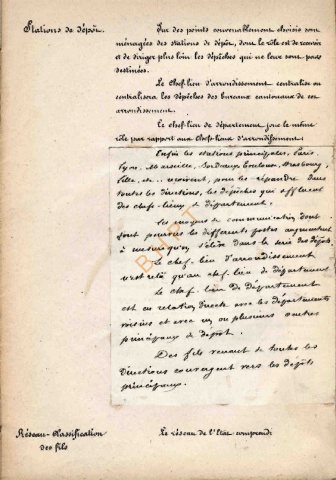 Stations de dépôt.
Sur des points convenablement choisis sont
ménagées des stations de dépôt, dont le rôle est de recevoir
et de diriger plus loin les dépêches qui ne leur sont pas
destinées.
Le chef-lieu d'arrondissement centralise ou
centralisera les dépêches des bureaux cantonaux de son
arrondissement.
Le chef-lieu de département joue le même
rôle par rapport aux chefs-lieux d'arrondissement.
Enfin les stations principales, Paris,
Lyon, Marseille, Bordeaux, Toulouse, Strasbourg,
Lille, etc.. reçoivent, pour les répandre dans
toutes les directions, les dépêches qui affluent
des chefs-lieux de département.
Les moyens de communication dont
sont pourvus les différents postes augmentent
à mesure qu'on s'élève dans la série des dépôts.
Le chef-lieu d'arrondissement
n'est relié qu'au chef-lieu de département
Le chef-lieu de département
est en relation directe avec les départements
voisins et avec un ou plusieurs centres
principaux de dépôt.
Des fils venant de toutes les
directions convergent vers les dépôts
principaux.
BHPT
Réseau - Classification
des fils
Le réseau de l'Etat comprend